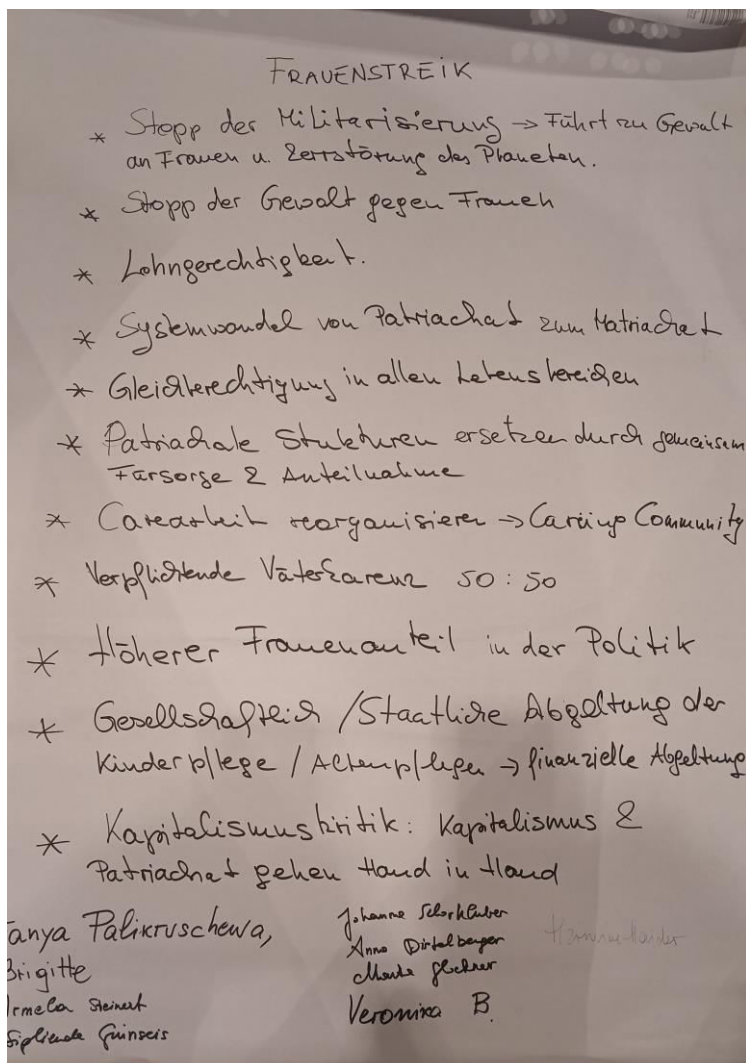 FRAUENSTREIK
* Stopp der Militarisierung → Führt zu Gewalt
an Frauen u. Zerstörung des Planeten.
* Stopp der Gewalt gegen Frauen
* Lohngerechtigkeit.
* Systemwandel von Patriachat zum Matriachat
* Gleichberechtigung in allen Lebensbereichen
* Patriachale Stukturen ersetzen durch gemeinsam
Fürsorge & Anteilnahme
* Carearbeit reorganisieren → Caring Community
* Verpflichtende Väterkarenz 50:50
* Höherer Frauenanteil in der Politik
* Gesellschaftlich / Staatliche Abgeltung der
Kinderpflege / Altenpflegen → finanzielle Abgeltung
* Kapitalismuskritik: Kapitalismus &
Patriachat gehen Hand in Hand
anya Palikruschewa,
Brigitte
Irmela Steinert
Johanne
Anna
Veronika B.